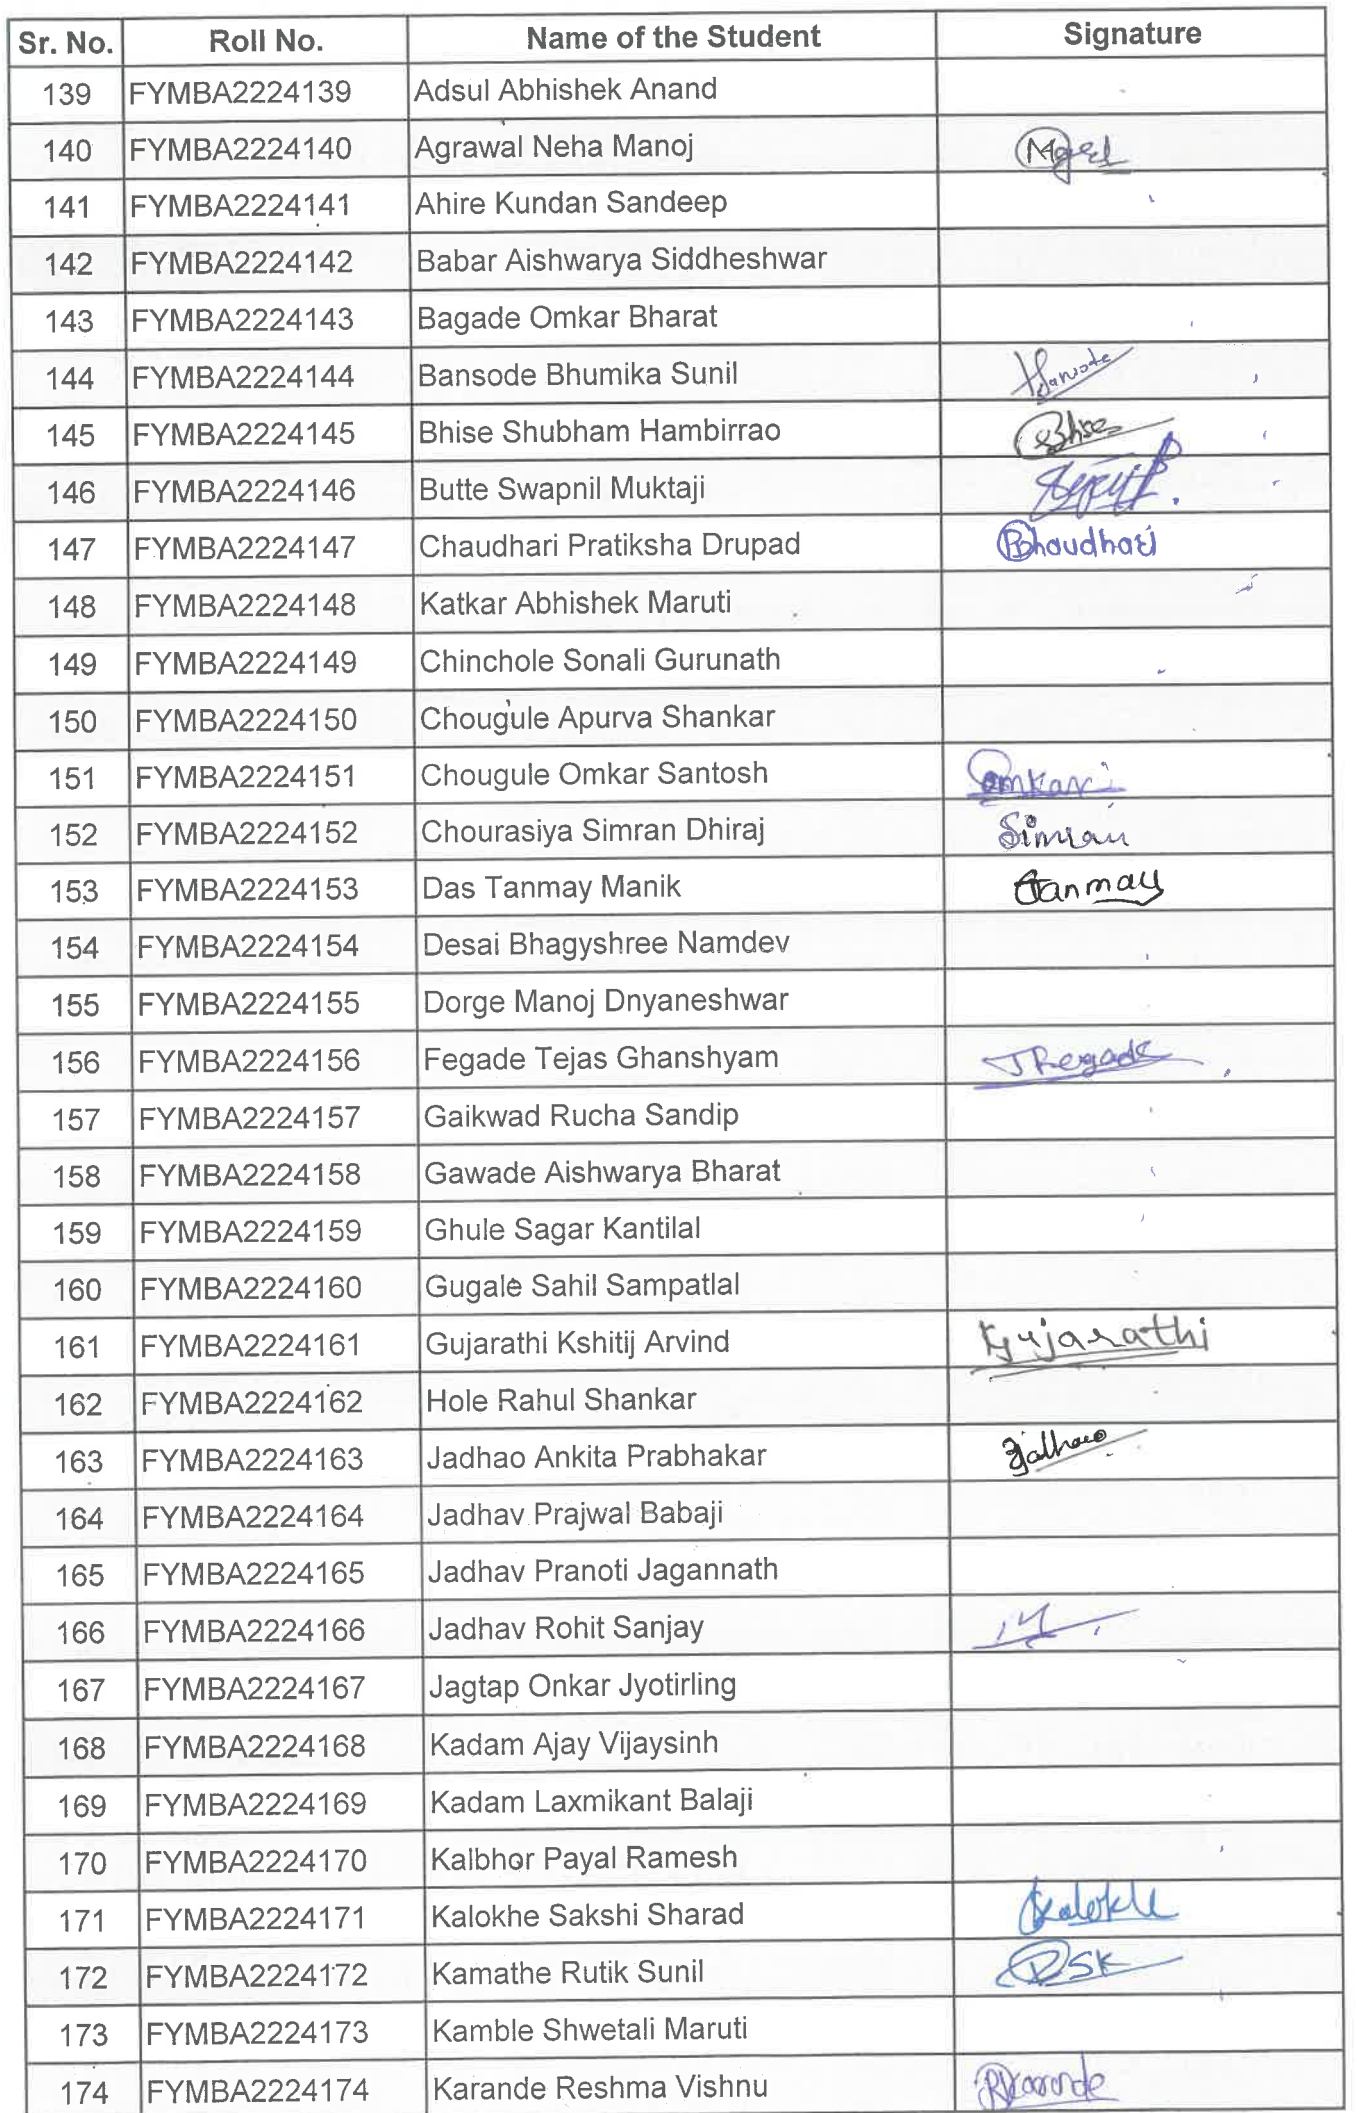 Sr. No. Roll No. Name of the Student Signature
139 FYMBA2224139 Adsul Abhishek Anand
140 FYMBA2224140 Agrawal Neha Manoj
141 FYMBA2224141 Ahire Kundan Sandeep
142 FYMBA2224142 Babar Aishwarya Siddheshwar
143 FYMBA2224143 Bagade Omkar Bharat
144 FYMBA2224144 Bansode Bhumika Sunil
145 FYMBA2224145 Bhise Shubham Hambirrao Bhise
146 FYMBA2224146 Butte Swapnil Muktaji
147 FYMBA2224147 Chaudhari Pratiksha Drupad
148 FYMBA2224148 Katkar Abhishek Maruti
149 FYMBA2224149 Chinchole Sonali Gurunath
150 FYMBA2224150 Chougule Apurva Shankar
151 FYMBA2224151 Chougule Omkar Santosh
152 FYMBA2224152 Chourasiya Simran Dhiraj Simran
153 FYMBA2224153 Das Tanmay Manik Tanmay
154 FYMBA2224154 Desai Bhagyshree Namdev
155 FYMBA2224155 Dorge Manoj Dnyaneshwar
156 FYMBA2224156 Fegade Tejas Ghanshyam
157 FYMBA2224157 Gaikwad Rucha Sandip
158 FYMBA2224158 Gawade Aishwarya Bharat
159 FYMBA2224159 Ghule Sagar Kantilal
160 FYMBA2224160 Gugale Sahil Sampatlal
161 FYMBA2224161 Gujarathi Kshitij Arvind
162 FYMBA2224162 Hole Rahul Shankar
163 FYMBA2224163 Jadhao Ankita Prabhakar
164 FYMBA2224164 Jadhav Prajwal Babaji
165 FYMBA2224165 Jadhav Pranoti Jagannath
166 FYMBA2224166 Jadhav Rohit Sanjay
167 FYMBA2224167 Jagtap Onkar Jyotirling
168 FYMBA2224168 Kadam Ajay Vijaysinh
169 FYMBA2224169 Kadam Laxmikant Balaji
170 FYMBA2224170 Kalbhor Payal Ramesh
171 FYMBA2224171 Kalokhe Sakshi Sharad
172 FYMBA2224172 Kamathe Rutik Sunil RSK
173 FYMBA2224173 Kamble Shwetali Maruti
174 FYMBA2224174 Karande Reshma Vishnu